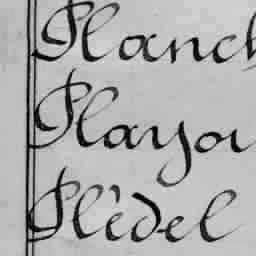 Planch
Playou
Plédel